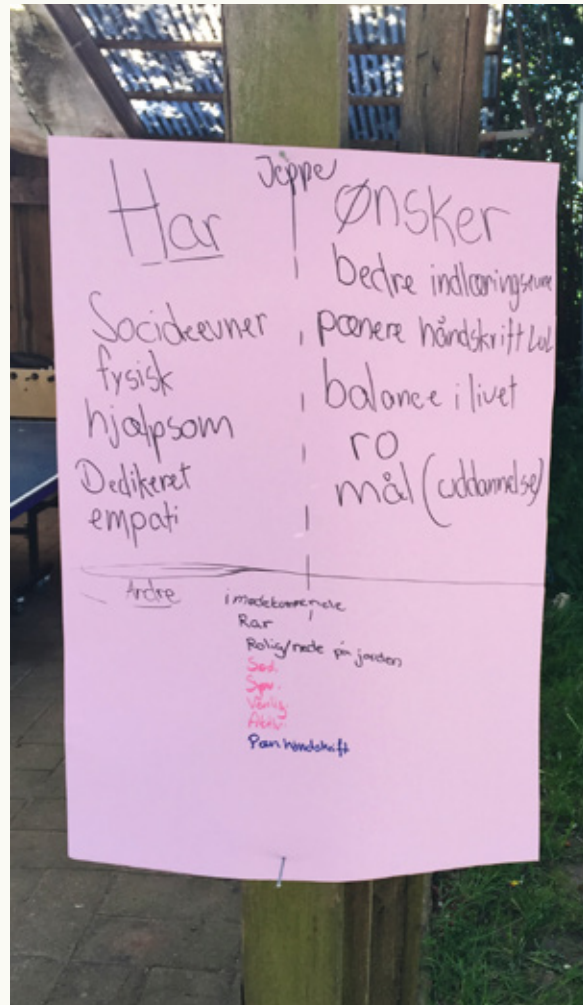 Jeppe
Har
Socialeevner
fysisk
hjælpsom
Dedikeret
empati
Ønsker
bedre indlæringsevne
pænere håndskrift lol
balance i livet
ro
mål (uddannelse)
Andre
imødekommende
Rar
Rolig/nede på jorden
Sød.
Sjov.
Venlig.
Aktiv.
Pæn håndskrift